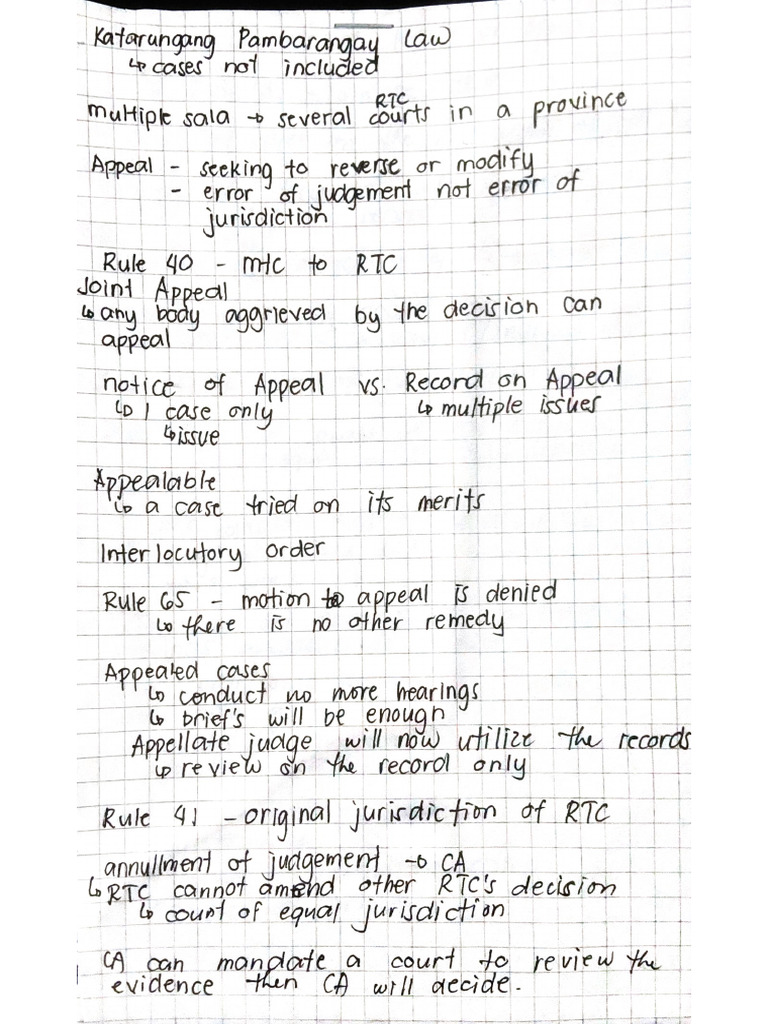 Katarungang Pambarangay Law
↳ cases not included
multiple sala → several RTC courts in a province
Appeal - seeking to reverse or modify
- error of judgement not error of
jurisdiction
Rule 40 - mtc to RTC
Joint Appeal
↳ any body aggrieved by the decision can
appeal
notice of Appeal vs. Record on Appeal
↳ 1 case only ↳ multiple issues
↳ issue
Appealable
↳ a case tried on its merits
Interlocutory order
Rule 65 - motion to appeal is denied
↳ there is no other remedy
Appealed cases
↳ conduct no more hearings
↳ brief's will be enough
Appellate judge will now utilize the records
↳ review on the record only
Rule 41 - original jurisdiction of RTC
annullment of judgement → CA
↳ RTC cannot amend other RTC's decision
↳ court of equal jurisdiction
CA can mandate a court to review the
evidence then CA will decide.